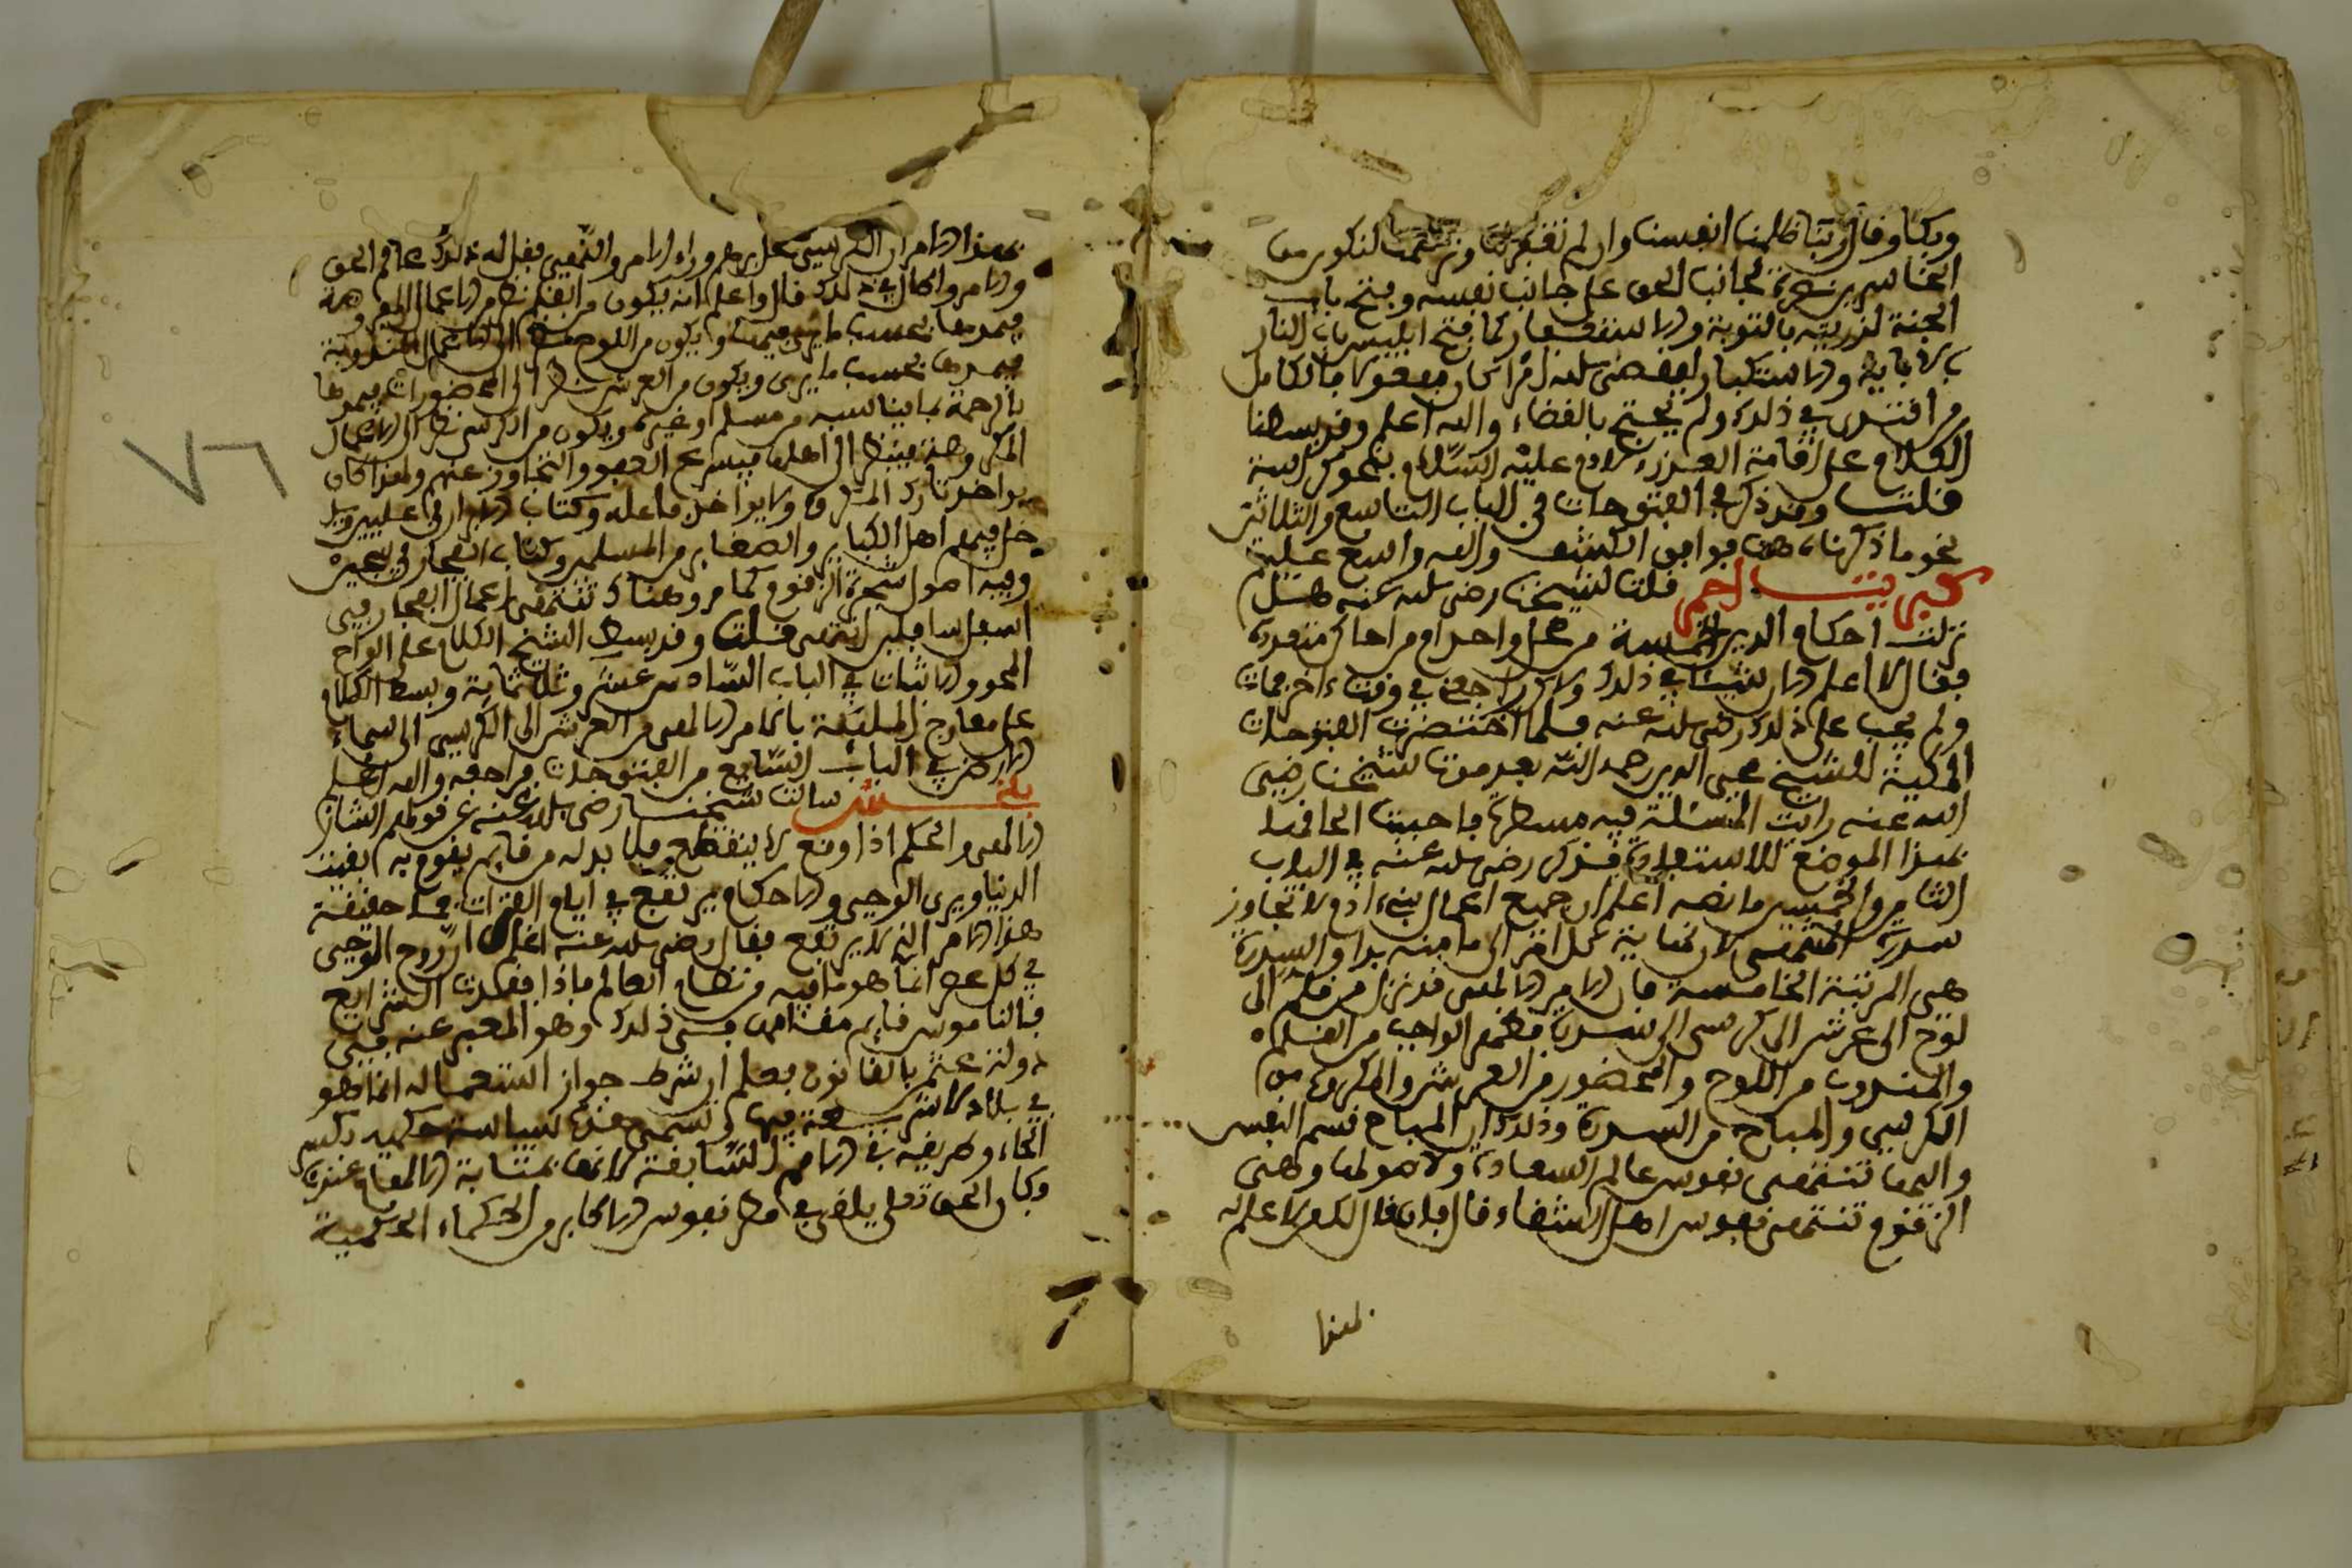 وبكا وقال ربنا ظلمنا انفسنا وان لم تغفر لنا وترحمنا لنكونن من
الخاسرين نصرة لجانب الحق على جانب نفسه وفتح باب
الجنة لذريته بالتوبة والاستغفار كما فتح ابليس باب النار
بالاباية والاستكبار ليقضي الله امرا كان مفعولا فالكامل
من اقتدى في ذلك ولم يحتج بالقضاء والله اعلم وقد بسطنا
الكلام على اقامة العذر لادم عليه السلام بنحو كراسة
قلت وقد ذكر في الفتوحات في الباب التاسع والثلاثين
نحو ما ذكرناه هنا فوافق الكشف والله واسع عليم
كبريت احمر قلت لشيخنا رضي الله عنه هل
نزلت احكام الدين الخمسة من محل واحد ام من اماكن متعددة
فقال لا اعلم الان شيئا في ذلك ولاكن راجعني في وقت ءاخر فمات
ولم يجب على ذلك رضي الله عنه فلما اختصرت الفتوحات
المكية للشيخ محيي الدين رحمه الله بعد موت شيخنا رضي
الله عنه رايت المسئلة فيه مسطرة فاحببت الحاقها
بهذا الموضع للاستفادة فذكر رضي الله عنه في الباب
الثامن والخمسين ما نصه اعلم ان جميع اعمال بنيء ادم لا تجاوز
سدرة المنتهى لان نهاية كل امر الى ما منه بدا والسدرة
هي المرتبة الخامسة فان الامر الالهي قد نزل من قلم الى
لوح الى عرش الى كرسي الى سدرة فظهر الواجب من القلم
والمندوب من اللوح والمحظور من العرش والمكروه من
الكرسي والمباح من السدرة وذلك ان المباح قسم النفس
واليها تنتهي نفوس عالم السعادة ولاصولها وهي
الزقوم تنتهي نفوس اهل الشقاء قال فان قال لك لا علم له
لهنا
بهذا الامر ان الكرسي محل بروز الامر والنهي فقل له ذلك عالم الخلق
والامر والحال في ذلك قال واعلم انه يكون من القلم نظر الى الاعمال المفروضة
فيمدها بحسب ما يرى فيها ويكون من اللوح نظر الى الاعمال المندوبة
فيمدها بحسب ما يرى ويكون من العرش نظر الى المحظورات فيمدها
بالرحمة بما يناسبه من مسلم او غيره ويكون من الكرسي نظر الى الاعمال
المكروهة فينظر الى اهلها فيسرع العفو والتجاوز عنهم ولهذا كان
يؤاخذ تارك المكروه ولا يؤاخذ فاعله وكتاب الابرار في عليين
دخل فيهم اهل الكباير والصغاير من المسلمين وكتاب الفجار في سجين
وفيه اصول شجرة الزقوم كما مر وهناك تنتهي اعمال الفجار في
اسفل سافلين انتهى قلت وقد بسط الشيخ الكلام على الواح
المحو والاثبات في الباب السادس عشر وثلاثماية وبسط الكلام
على معارج المليكة بالامر الالهي من العرش الى الكرسي الى السماء
الى الارض في الباب السابع من الفتوحات فراجعه والله اعلم
بلخش سالت شيخنا رضي الله عنه عن قولهم الشان
الالهي والحكم اذا وقع لا ينقطع فلا بد له من قايم يقوم به الى
الدنيا ويرى الوحي والاحكام يرتفع في ايام الفترات فما حقيقة
هذا الامر الذي لا يرتفع فقال رضي الله عنه اعلم ان روح الوحي
في كل عصر انما هو ما فيه من نظام العالم فاذا فقدت الشرايع
فالناموس قايم مقامها في ذلك وهو المعبر عنه في
دولة عثمن بالقانون فعلم ان شرط جواز استعماله انما هو
في بلاد لا شريعة فيها كي تسمى عندهم سياسة حكمية بكسر
الحاء وطريقه في الامم السابقة كانها بمثابة الالهام عندنا
وكان الحق تعلى يلقي في فطر نفوس الاكابر من الحكماء الحكمية